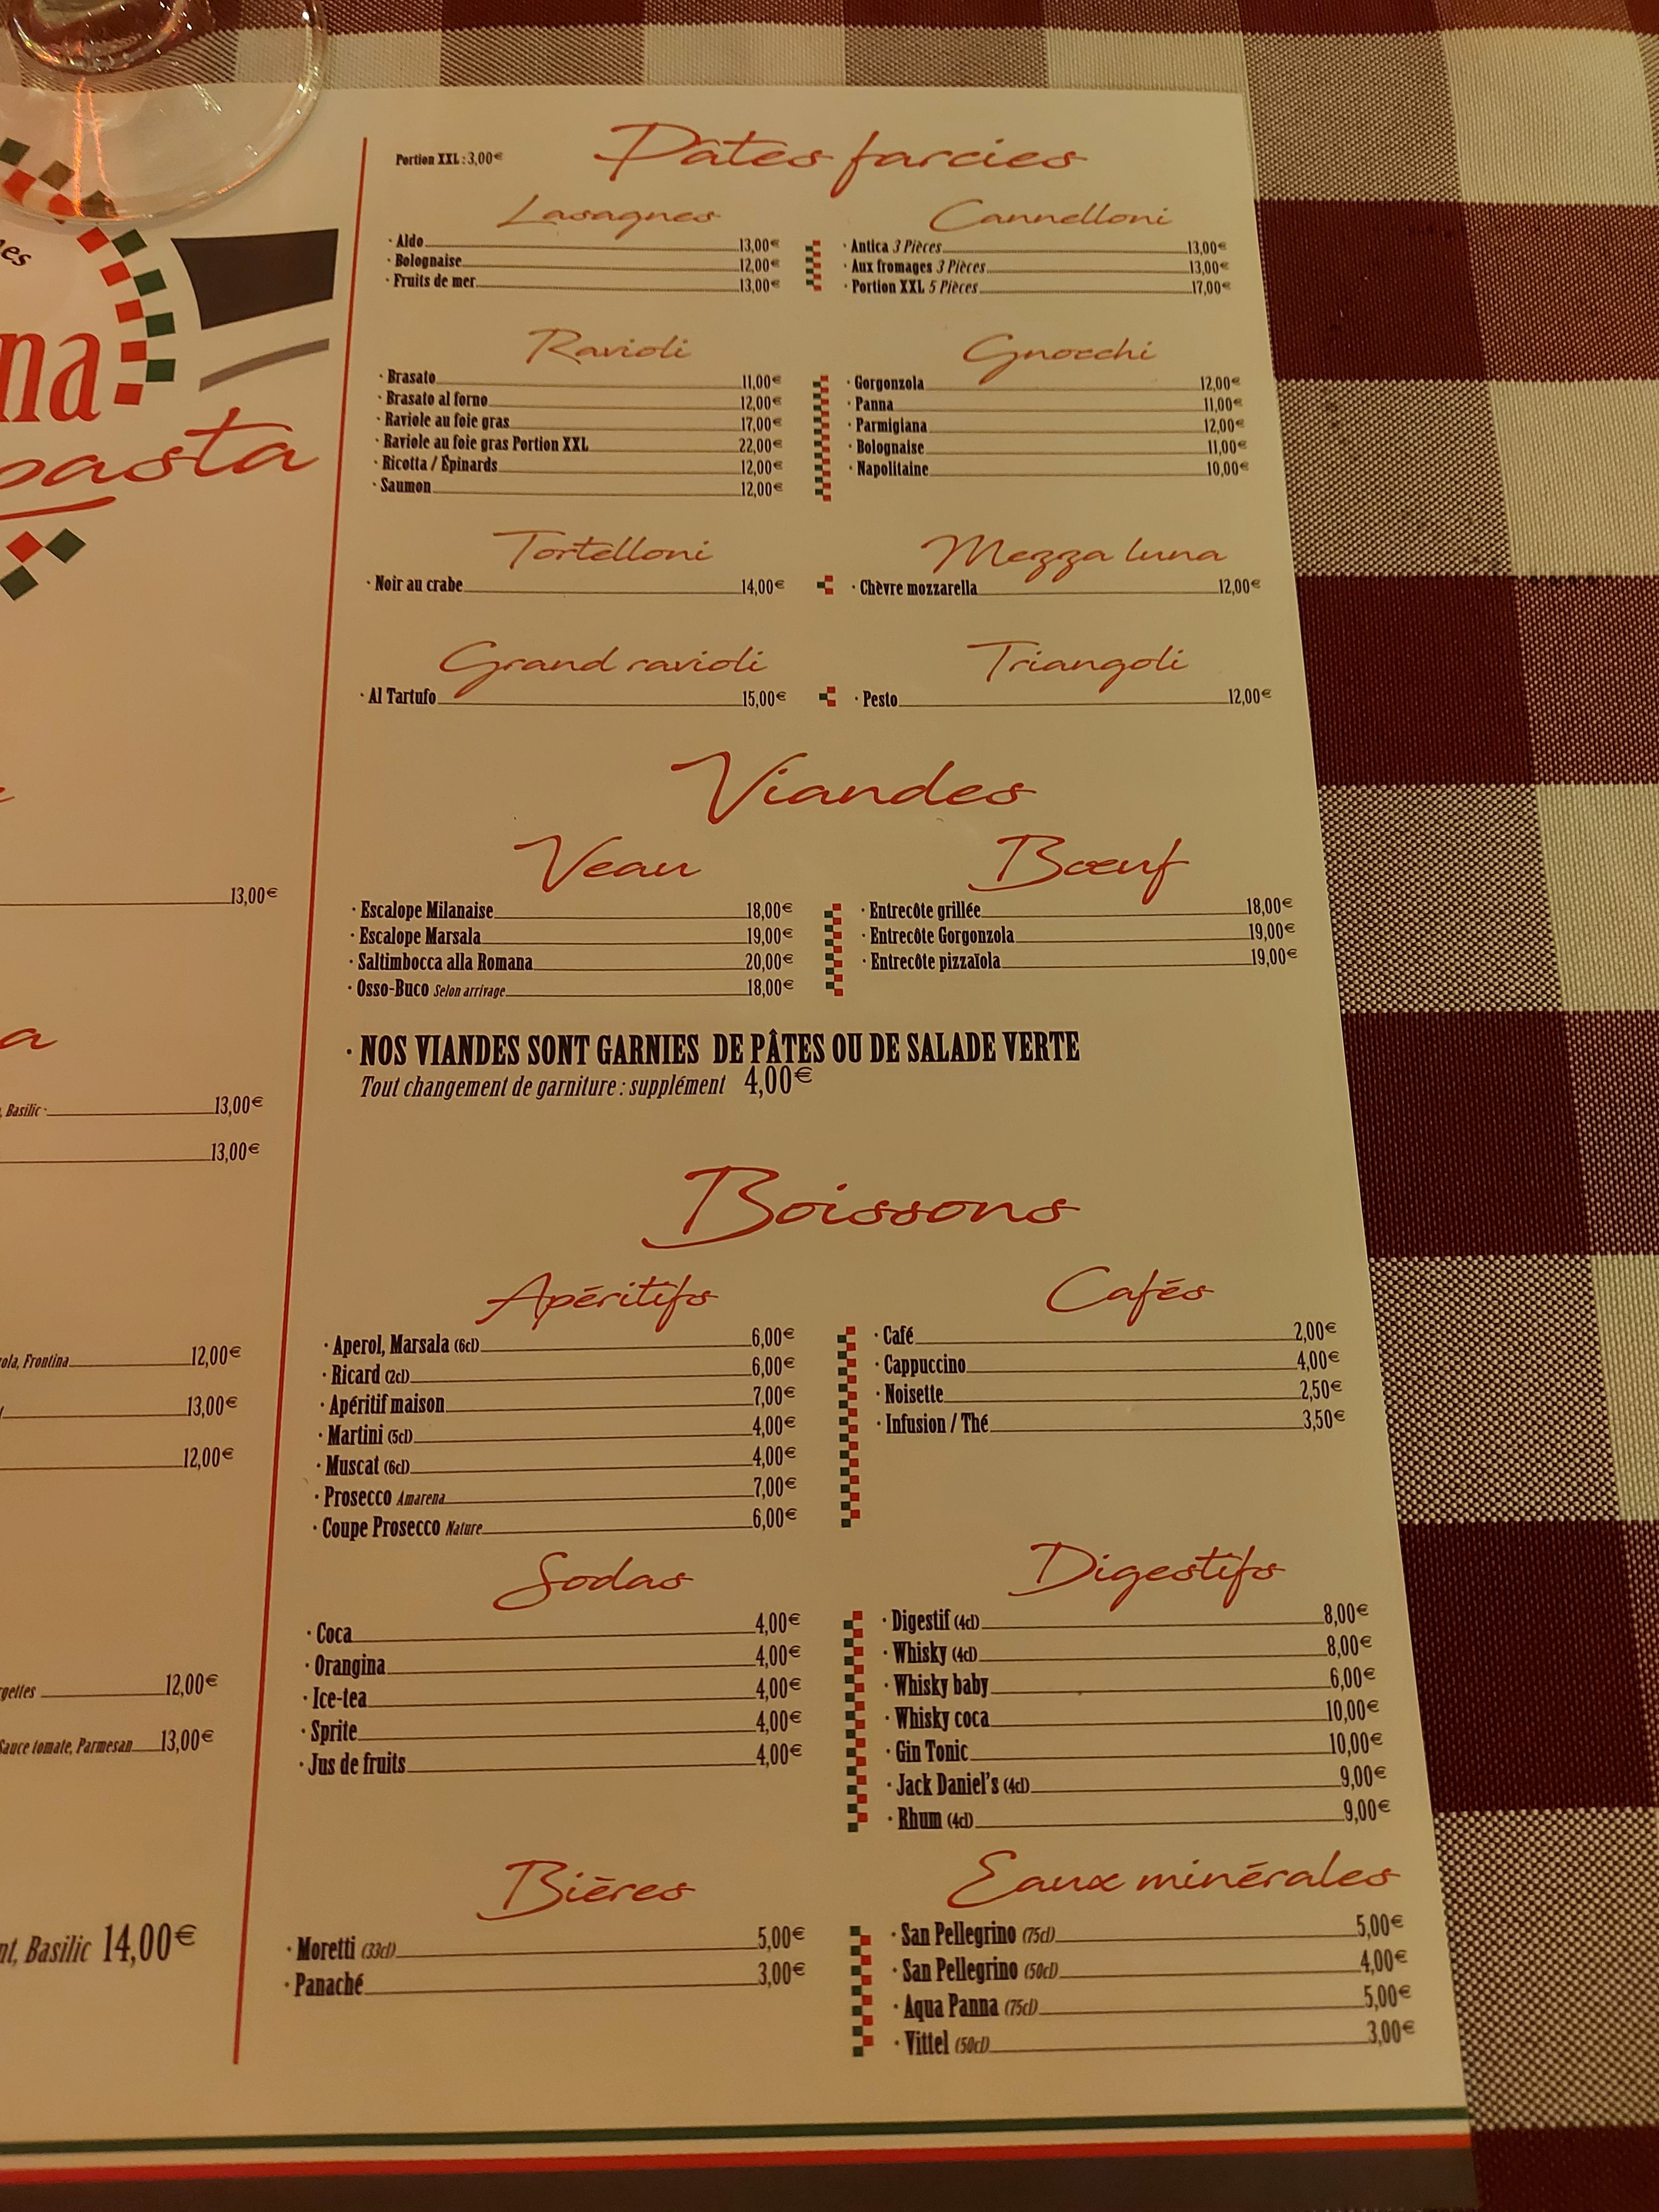 es
na
pasta
13,00€
a
, Basilic 13,00€
13,00€
ola, Frontina 12,00€
13,00€
12,00€
gettes 12,00€
Sauce tomate, Parmesan 13,00€
nt, Basilic 14,00€
Portion XXL : 3,00€
Pâtes farcies
Lasagnes
· Aldo 13,00€
· Bolognaise 12,00€
· Fruits de mer 13,00€
Cannelloni
· Antica 3 Pièces 13,00€
· Aux fromages 3 Pièces 13,00€
· Portion XXL 5 Pièces 17,00€
Ravioli
· Brasato 11,00€
· Brasato al forno 12,00€
· Raviole au foie gras 17,00€
· Raviole au foie gras Portion XXL 22,00€
· Ricotta / Épinards 12,00€
· Saumon 12,00€
Gnocchi
· Gorgonzola 12,00€
· Panna 11,00€
· Parmigiana 12,00€
· Bolognaise 11,00€
· Napolitaine 10,00€
Tortelloni
· Noir au crabe 14,00€
Mezza luna
· Chèvre mozzarella 12,00€
Grand ravioli
· Al Tartufo 15,00€
Triangoli
· Pesto 12,00€
Viandes
Veau
· Escalope Milanaise 18,00€
· Escalope Marsala 19,00€
· Saltimbocca alla Romana 20,00€
· Osso-Buco Selon arrivage 18,00€
Bœuf
· Entrecôte grillée 18,00€
· Entrecôte Gorgonzola 19,00€
· Entrecôte pizzaïola 19,00€
· NOS VIANDES SONT GARNIES DE PÂTES OU DE SALADE VERTE
Tout changement de garniture : supplément 4,00€
Boissons
Apéritifs
· Aperol, Marsala (6cl) 6,00€
· Ricard (2cl) 6,00€
· Apéritif maison 7,00€
· Martini (5cl) 4,00€
· Muscat (6cl) 4,00€
· Prosecco Amarena 7,00€
· Coupe Prosecco Nature 6,00€
Cafés
· Café 2,00€
· Cappuccino 4,00€
· Noisette 2,50€
· Infusion / Thé 3,50€
Sodas
· Coca 4,00€
· Orangina 4,00€
· Ice-tea 4,00€
· Sprite 4,00€
· Jus de fruits 4,00€
Digestifs
· Digestif (4cl) 8,00€
· Whisky (4cl) 8,00€
· Whisky baby 6,00€
· Whisky coca 10,00€
· Gin Tonic 10,00€
· Jack Daniel's (4cl) 9,00€
· Rhum (4cl) 9,00€
Bières
· Moretti (33cl) 5,00€
· Panaché 3,00€
Eaux minérales
· San Pellegrino (75cl) 5,00€
· San Pellegrino (50cl) 4,00€
· Aqua Panna (75cl) 5,00€
· Vittel (50cl) 3,00€